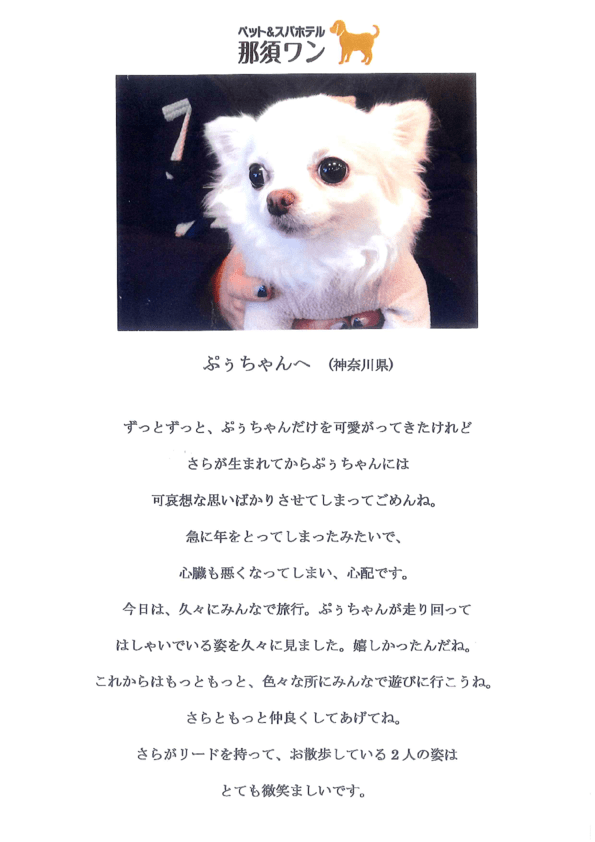 ペット&スパホテル
那須ワン
7
ぷぅちゃんへ （神奈川県）
ずっとずっと、ぷぅちゃんだけを可愛がってきたけれど
さらが生まれてからぷぅちゃんには
可哀想な思いばかりさせてしまってごめんね。
急に年をとってしまったみたいで、
心臓も悪くなってしまい、心配です。
今日は、久々にみんなで旅行。ぷぅちゃんが走り回って
はしゃいでいる姿を久々に見ました。嬉しかったんだね。
これからはもっともっと、色々な所にみんなで遊びに行こうね。
さらともっと仲良くしてあげてね。
さらがリードを持って、お散歩している２人の姿は
とても微笑ましいです。